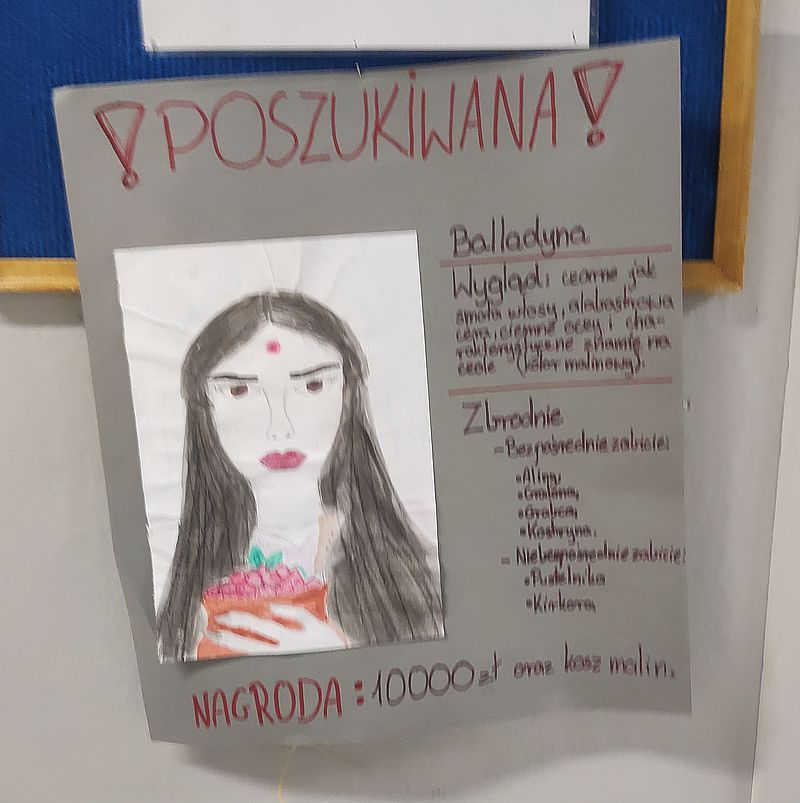 !POSZUKIWANA!
Balladyna
Wygląd: czarne jak
smoła włosy, alabastrowa
cera, ciemne oczy i cha-
rakterystyczne znamię na
czole (kolor malinowy).
Zbrodnie
- Bezpośrednie zabicie:
• Aliny,
• Gralona,
• Grabca,
• Kostryna.
- Niebezpośrednie zabicie:
• Pustelnika
• Kirkora
NAGRODA: 10000 zł oraz kosz malin.